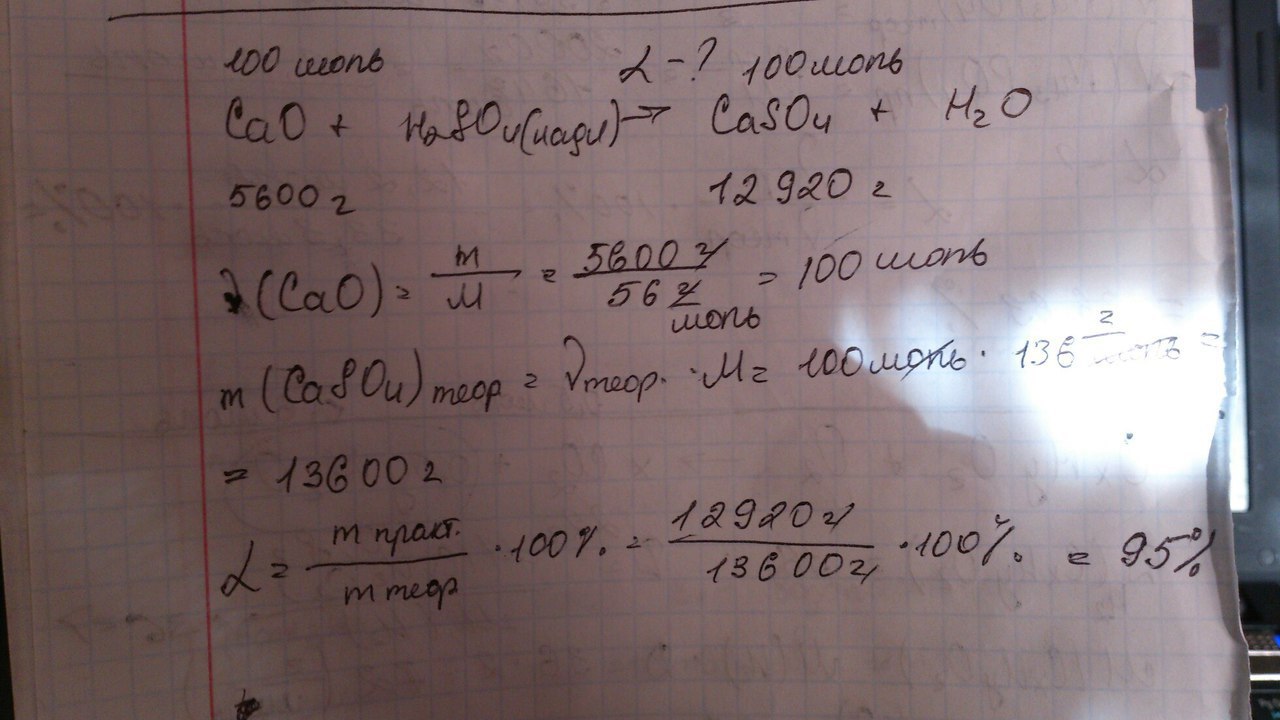 100 моль α - ? 100 моль
CaO + H₂SO₄(изб) → CaSO₄ + H₂O
5600 г 12 920 г
ν(CaO) = m/M = 5600 г / 56 г/моль = 100 моль
m (CaSO₄) теор = ν теор. · M = 100 моль · 136 г/моль =
= 13600 г
α = m практ. / m теор · 100% = 12920 г / 13600 г · 100% = 95%